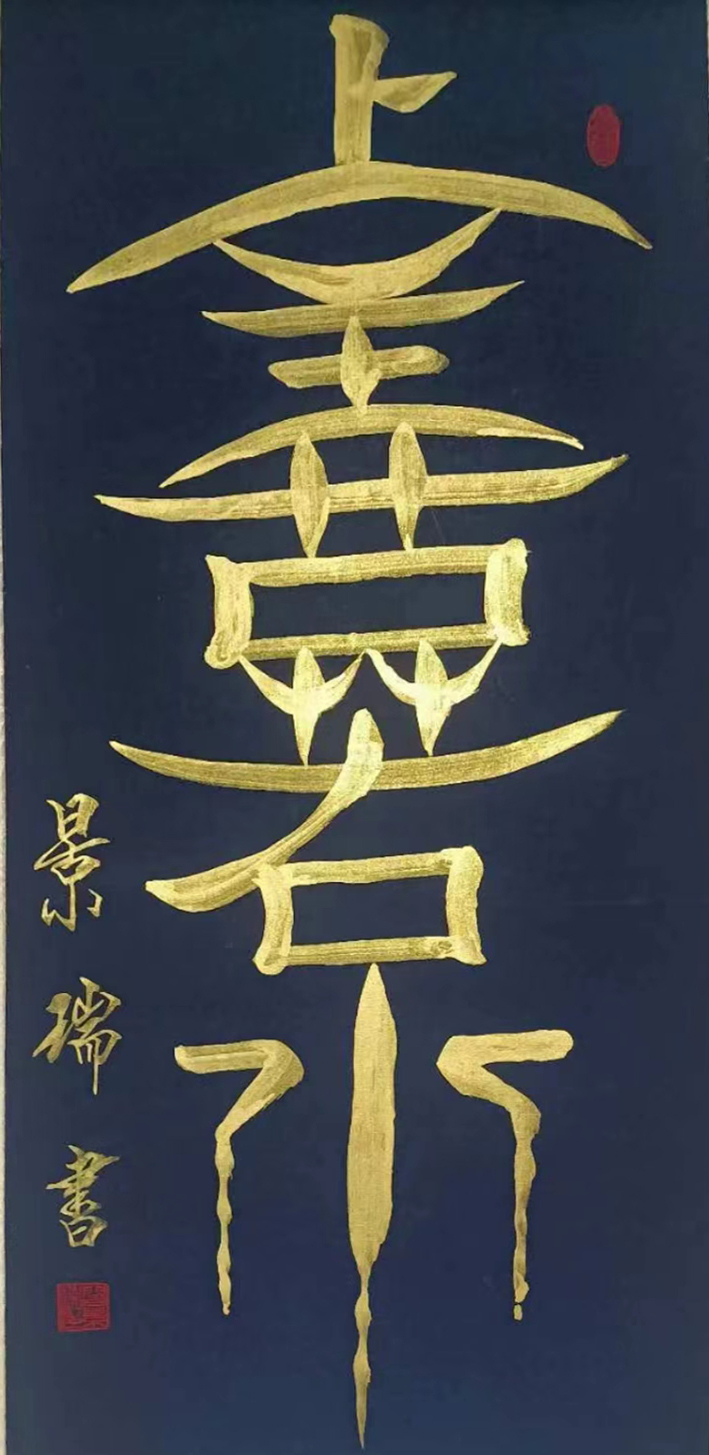 上善若水
景瑞書